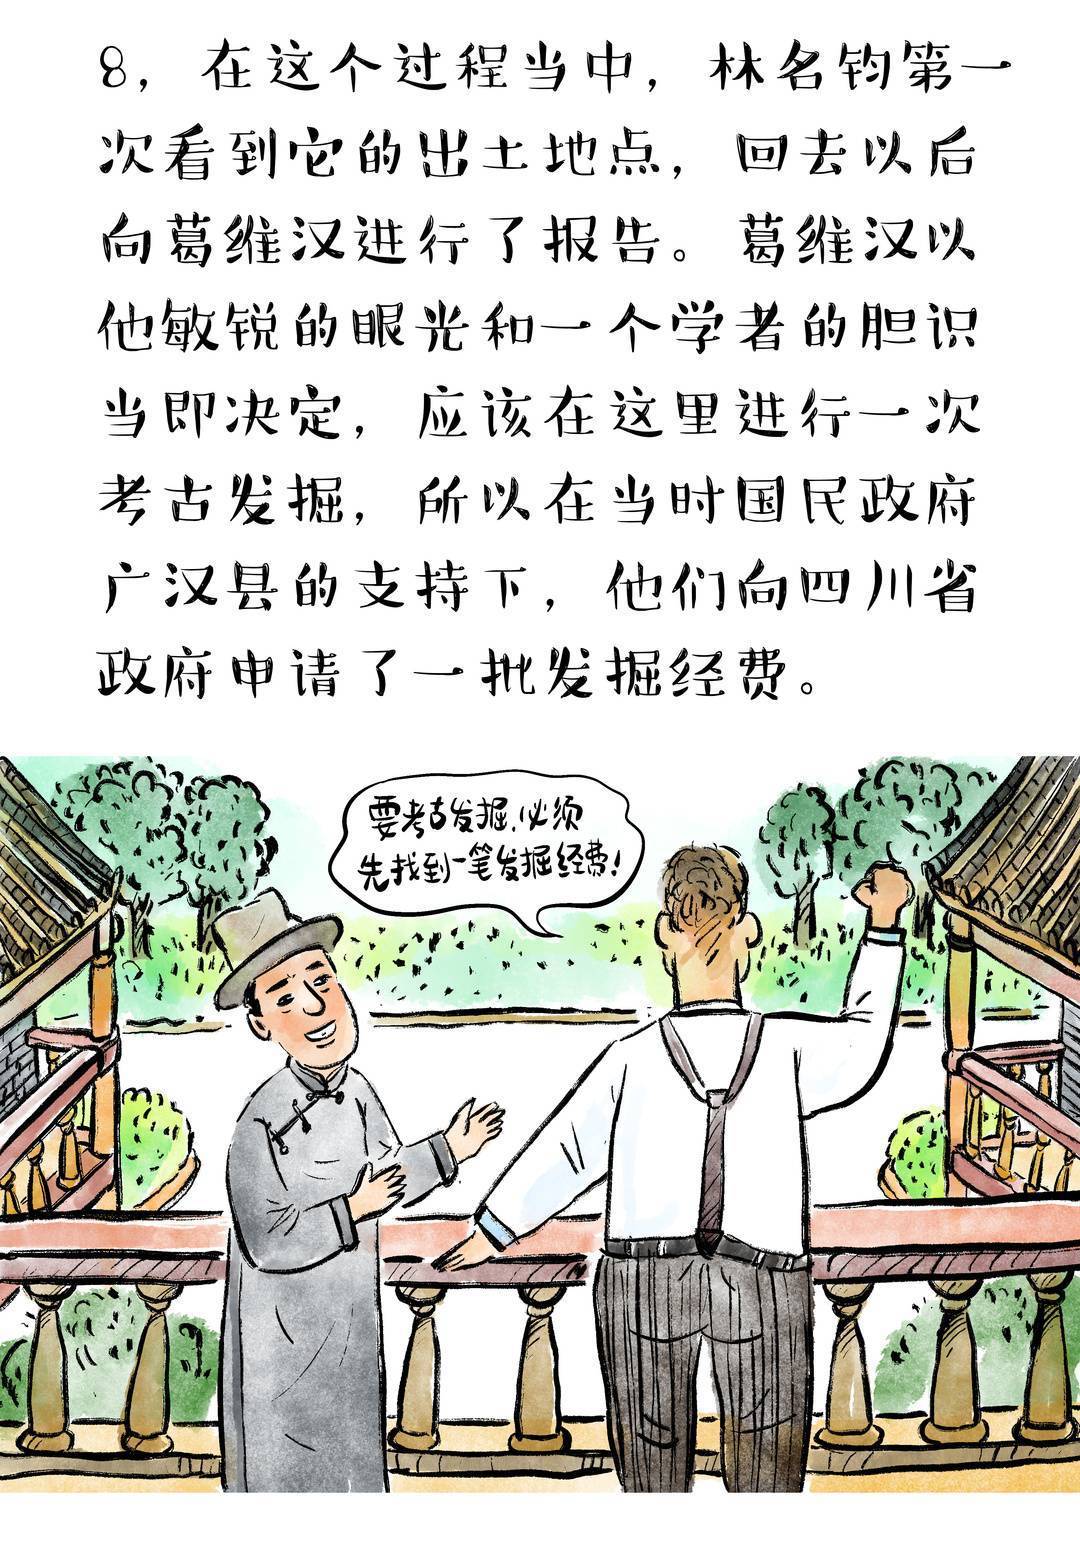 8，在这个过程当中，林名钧第一
次看到它的出土地点，回去以后
向葛维汉进行了报告。葛维汉以
他敏锐的眼光和一个学者的胆识
当即决定，应该在这里进行一次
考古发掘，所以在当时国民政府
广汉县的支持下，他们向四川省
政府申请了一批发掘经费。
要考古发掘，必须
先找到一笔发掘经费！